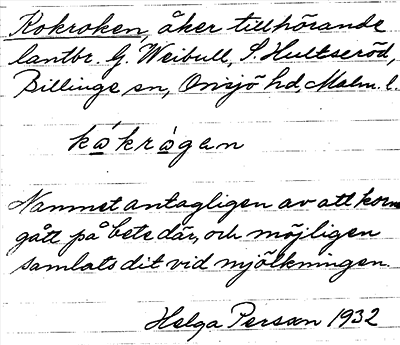 Kokroken, åker tillhörande
lantbr. G. Weibull, S. Hultseröd,
Billinge sn, Onsjö hd, Malm. l.
kákrògen
Namnet antagligen av att korna
gått på bete där, och möjligen
samlats dit vid mjölkningen.
Helga Persson 1932